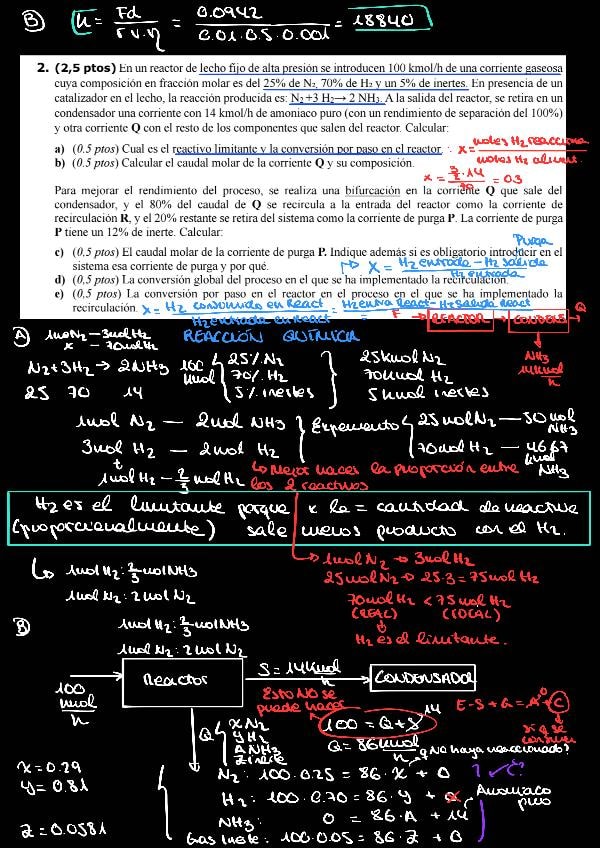 B) k = Fd / r·V·η = 0.0942 / 0.01·0.5·0.001 = 18840
2. (2,5 ptos) En un reactor de lecho fijo de alta presión se introducen 100 kmol/h de una corriente gaseosa
cuya composición en fracción molar es del 25% de N₂, 70% de H₂ y un 5% de inertes. En presencia de un
catalizador en el lecho, la reacción producida es: N₂+3 H₂→ 2 NH₃. A la salida del reactor, se retira en un
condensador una corriente con 14 kmol/h de amoniaco puro (con un rendimiento de separación del 100%)
y otra corriente Q con el resto de los componentes que salen del reactor. Calcular:
a) (0.5 ptos) Cual es el reactivo limitante y la conversión por paso en el reactor. : x = moles H₂ reacciona / moles H₂ aliment
b) (0.5 ptos) Calcular el caudal molar de la corriente Q y su composición.
x = 3/2·14 / 70 = 0.3
Para mejorar el rendimiento del proceso, se realiza una bifurcación en la corriente Q que sale del
condensador, y el 80% del caudal de Q se recircula a la entrada del reactor como la corriente de
recirculación R, y el 20% restante se retira del sistema como la corriente de purga P. La corriente de purga
P tiene un 12% de inerte. Calcular:
Purga
c) (0.5 ptos) El caudal molar de la corriente de purga P. Indique además si es obligatorio introducir en el
sistema esa corriente de purga y por qué.
x = H₂ entrada - H₂ salida / H₂ entrada
d) (0.5 ptos) La conversión global del proceso en el que se ha implementado la recirculación.
e) (0,5 ptos) La conversión por paso en el reactor en el proceso en el que se ha implementado la
recirculación. x = H₂ consumido en React / H₂ entrada en React = H₂ entra React - H₂ salida React
F → REACTOR → CONDENS → Q
NH₃
14 kmol/h
A) 1 mol N₂ — 3 mol H₂
x — 70 mol H₂
REACCIÓN QUÍMICA
N₂+3H₂ → 2NH₃
25 70 14
100 kmol
25% N₂
70% H₂
5% inertes
25 kmol N₂
70 kmol H₂
5 kmol inertes
1 mol N₂ — 2 mol NH₃
3 mol H₂ — 2 mol H₂
1 mol H₂ — 2/3 mol H₂
Experimento
25 mol N₂ — 50 mol NH₃
70 mol H₂ — 46,67 kmol NH₃
↳ Mejor haces la proporción entre
los 2 reactivos
H₂ es el limitante porque x la = cantidad de reactivo
(proporcionalmente) sale menos producto con el H₂.
↳ 1 mol H₂ : 2/3 mol NH₃
1 mol N₂ : 2 mol N₂
→ 1 mol N₂ → 3 mol H₂
25 mol N₂ → 25·3 = 75 mol H₂
70 mol H₂ < 75 mol H₂
(REAL) (IDEAL)
H₂ es el limitante.
B)
1 mol H₂ : 2/3 mol NH₃
1 mol N₂ : 2 mol N₂
100 kmol/h
Reactor
S = 14 kmol/h
CONDENSADOR
Esto NO se
puede hacer
100 = Q + S 14
E-S+G = A⁰ + C
si q se
consume
Q = 86 kmol/h
q no haya reaccionado?
Q
x N₂
y H₂
A NH₃
z inerte
x = 0.29
y = 0.81
z = 0.0581
N₂: 100·0.25 = 86·x + 0 ? ¿C?
H₂: 100·0.70 = 86·y + 0
Amoniaco
puro
NH₃: 0 = 86·A + 14
Gas inerte: 100·0.05 = 86·z + 0